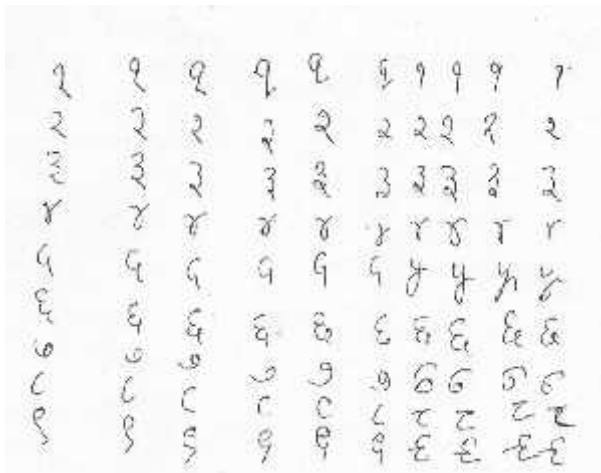 १ १ १ १ १ १ १ १ १ १
२ २ २ २ २ २ २ २ २ २
३ ३ ३ ३ ३ ३ ३ ३ ३ ३
४ ४ ४ ४ ४ ४ ४ ४ ४ ४
५ ५ ५ ५ ५ ५ ५ ५ ५ ५
६ ६ ६ ६ ६ ६ ६ ६ ६ ६
७ ७ ७ ७ ७ ७ ७ ७ ७ ७
८ ८ ८ ८ ८ ८ ८ ८ ८ ८
९ ९ ९ ९ ९ ९ ९ ९ ९ ९